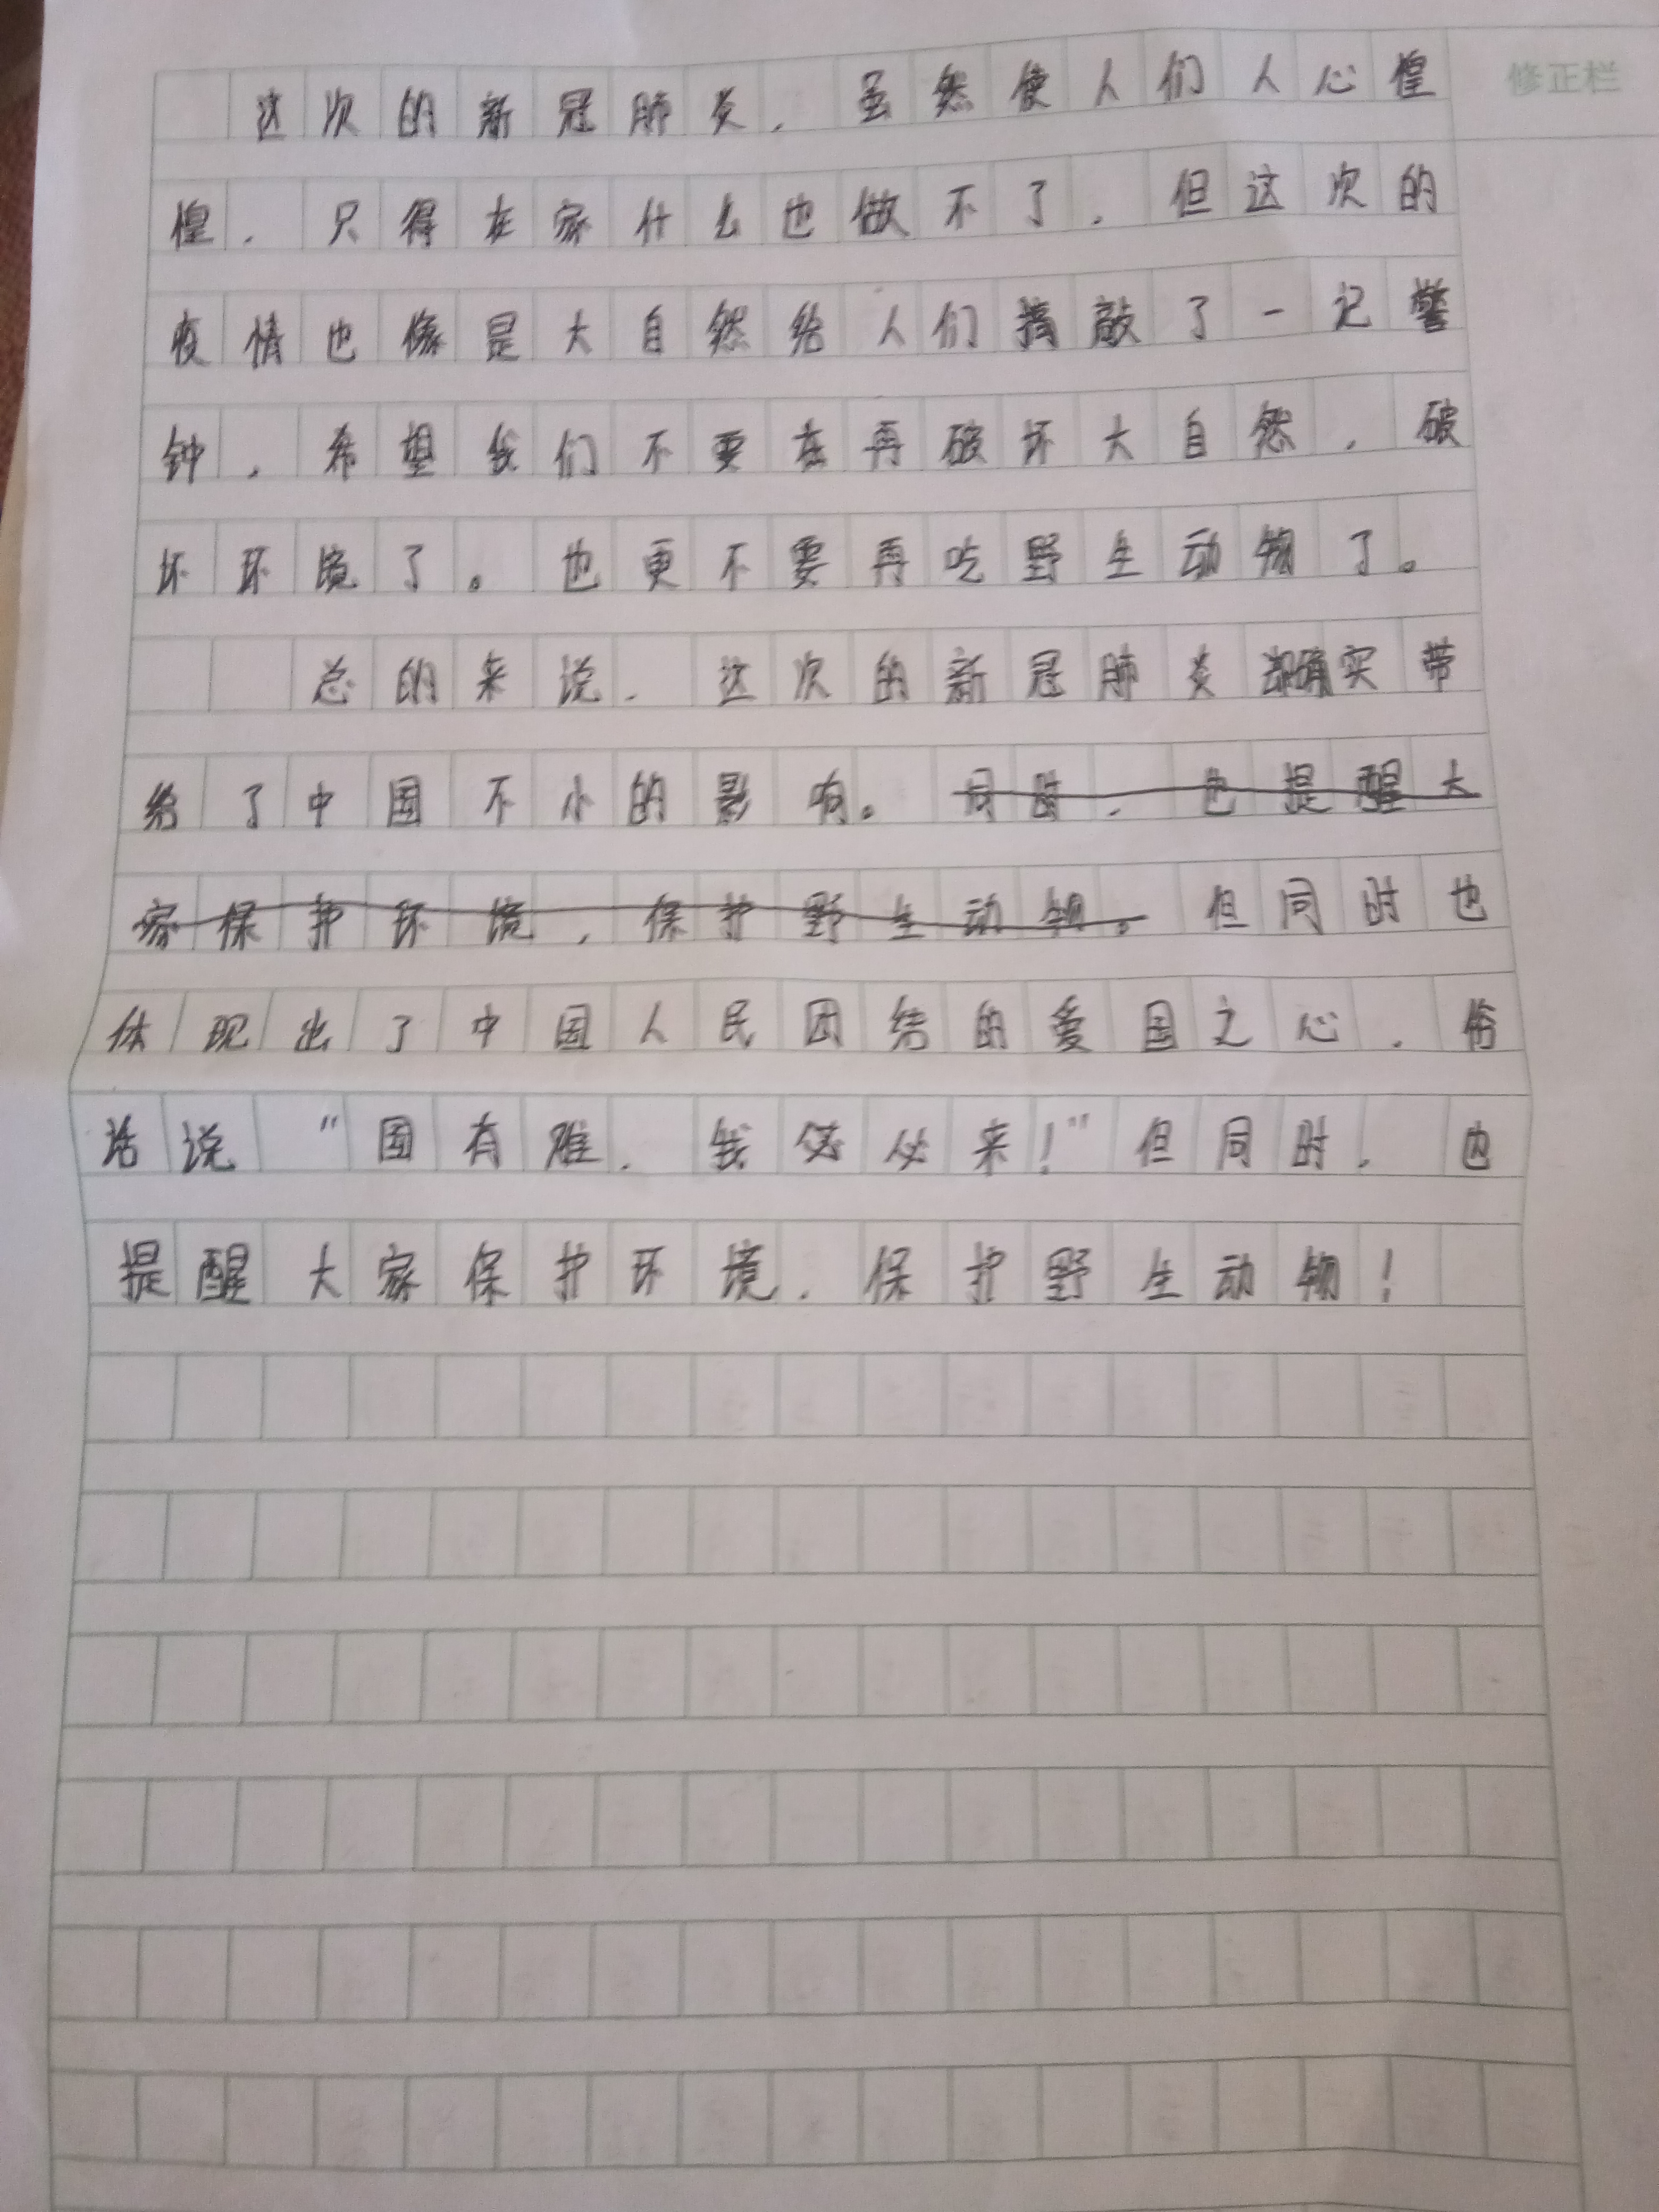 修正栏
这次的新冠肺炎，虽然使人们人心惶
惶，只得在家什么也做不了，但这次的
疫情也像是大自然给人们敲了一记警
钟，希望我们不要在再破坏大自然，破
坏环境了。也更不要再吃野生动物了。
总的来说，这次的新冠肺炎确实带
给了中国不小的影响。同时，也提醒大
家保护环境，保护野生动物。但同时也
体现出了中国人民团结的爱国之心，俗
话说“国有难，我必必来！”但同时，也
提醒大家保护环境，保护野生动物！